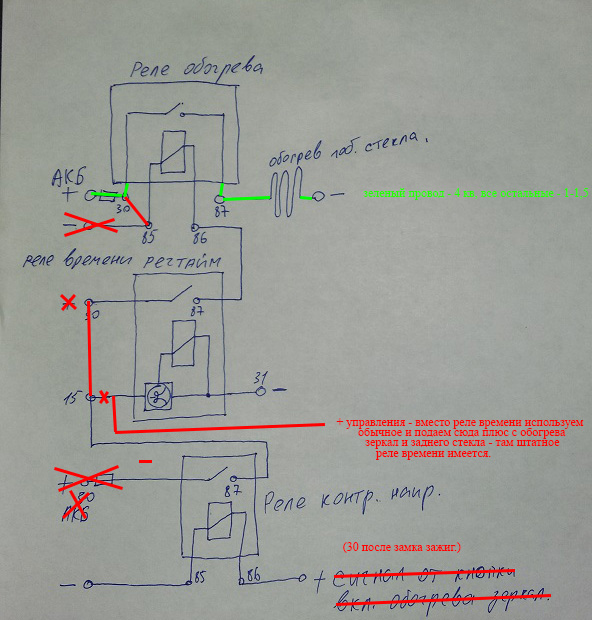 Реле обогрева
обогрев лоб. стекла.
АКБ
+
30
87
-
85
86
реле времени регтайм
30
87
31
-
15
+ управления - вместо реле времени используем
обычное и подаем сюда плюс с обогрева
зеркал и заднего стекла - там штатное
реле времени имеется.
-
+
30
87
АКБ
Реле контр. напр.
(30 после замка зажиг.)
-
85
86
+ сигнал от кнопки
вкл. обогрева зеркал.